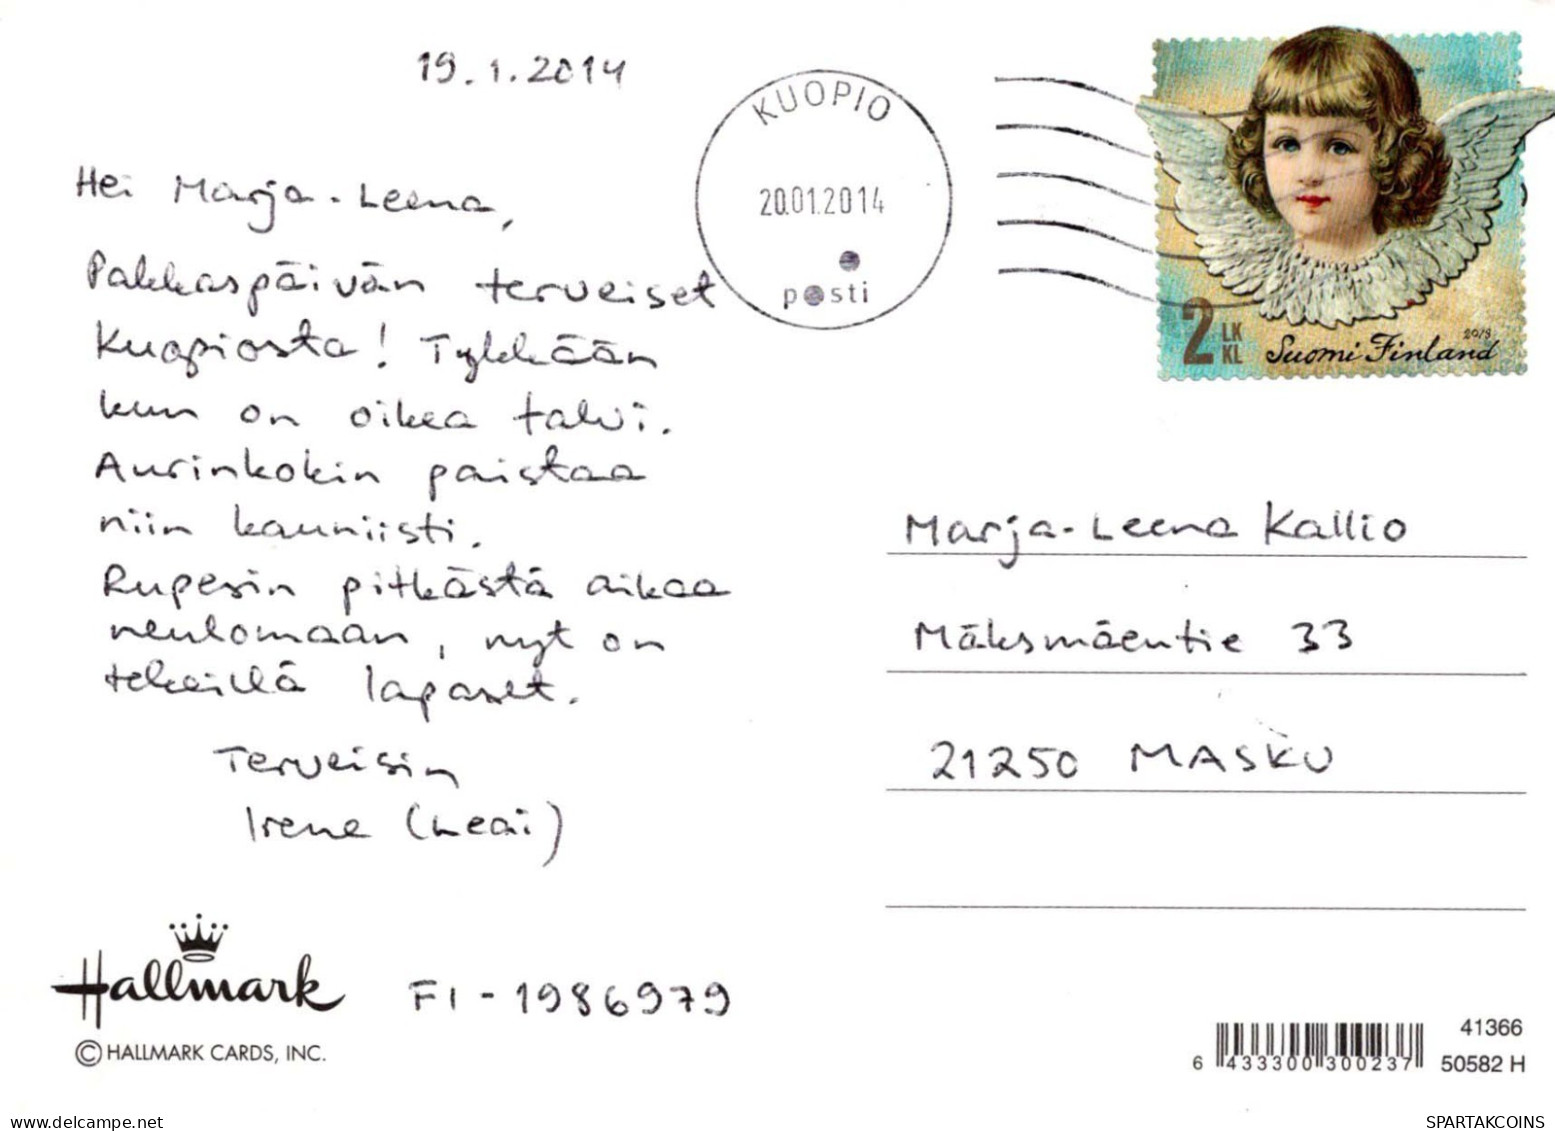 19.1.2014
KUOPIO
20.01.2014
posti
2 LK
KL
Suomi Finland
2013
Hei Marja-Leena,
Pakkaspäivän terveiset
Kuopiosta! Tykkään
kun on oikea talvi.
Aurinkokin paistaa
niin kauniisti.
Rupesin pitkästä aikaa
neulomaan, nyt on
tekeillä lapaset.
Terveisin
Irene
Marja-Leena Kallio
Mäksmäentie 33
21250 MASKU
Hallmark
© HALLMARK CARDS, INC.
FI-1986979
41366
6 433300 300237
50582 H
delcampe.net
SPARTAKCOINS